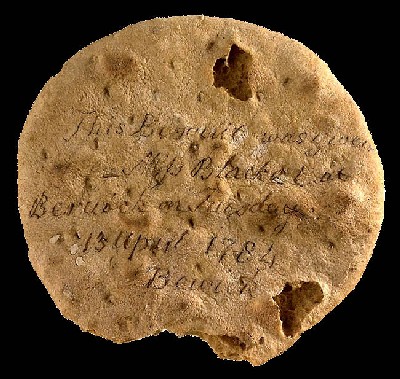 This Biscuit was given
– Miss Blacket at
Berwick on Tuesday
13 April 1784